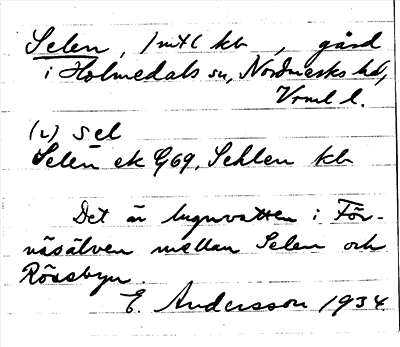 Selen, 1 mtl kb, gård
i Holmedals sn, Nordmarks hd,
Vrml l.
(2) sel
Selen ek G69, Sehlen kb
Det är lugnvatten i För-
väsälven mellan Selen och
Rössbyn.
E. Andersson 1934